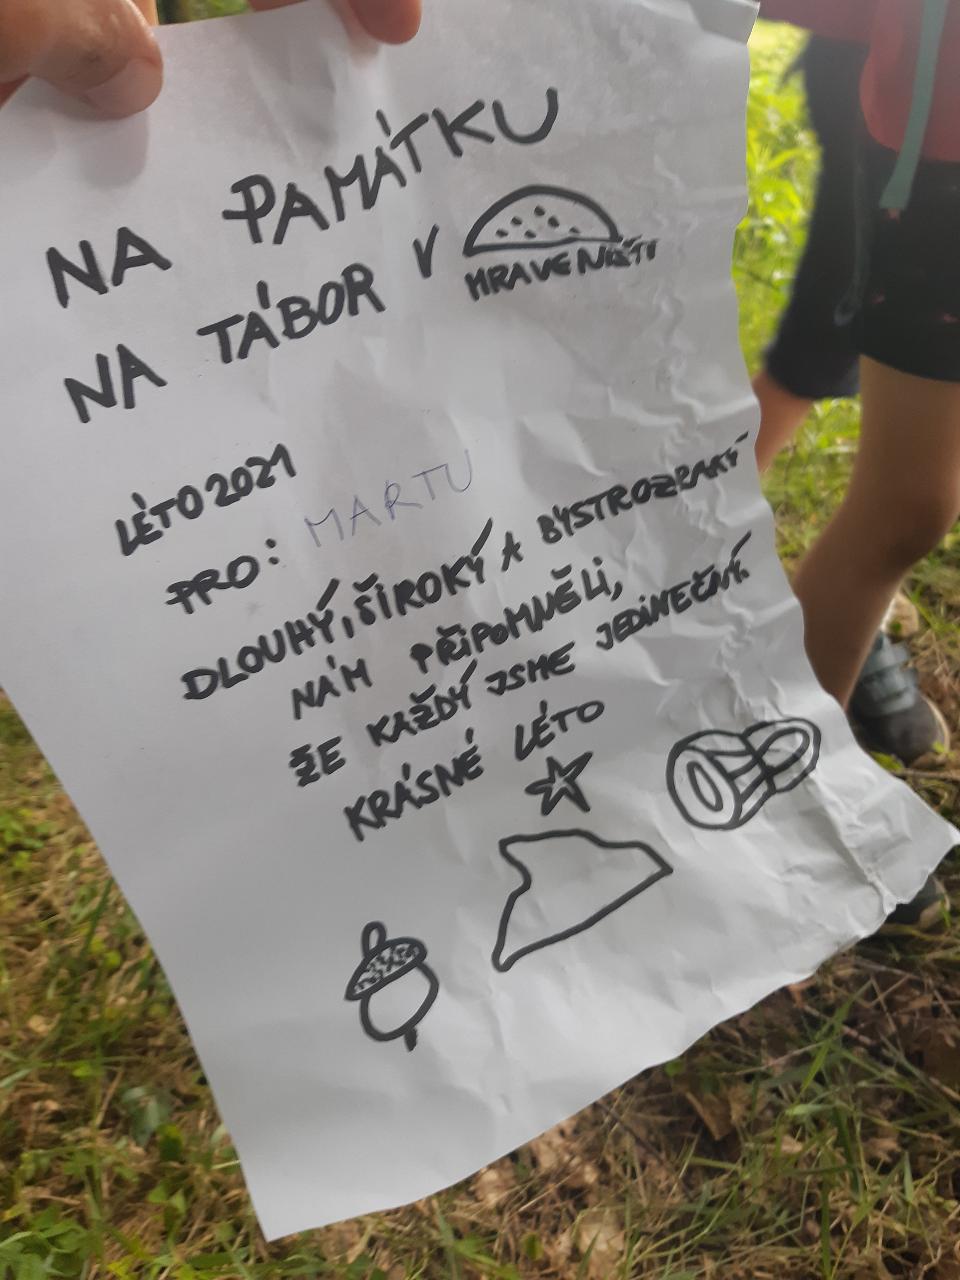 NA PAMÁTKU
NA TÁBOR V MRAVENIŠTI
LÉTO 2021
PRO: MARTU
DLOUHÝ, ŠIROKÝ A BYSTROZRAKÝ
NÁM PŘIPOMNĚLI,
ŽE KAŽDÝ JSME JEDINEČNÝ.
KRÁSNÉ LÉTO